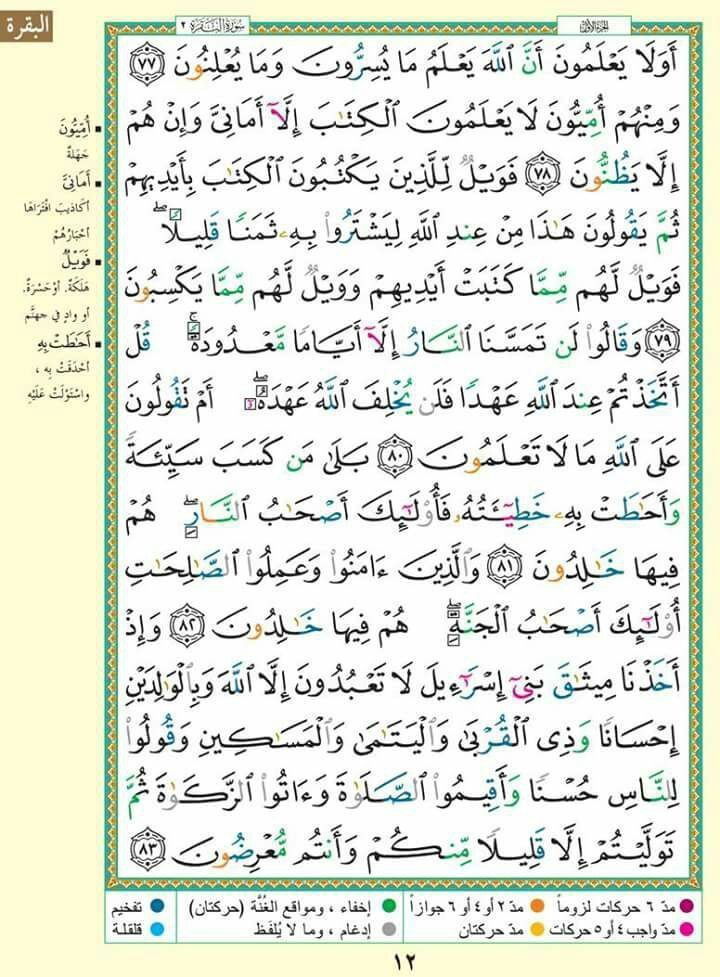 البقرة
الجزء الأول
سورة البقرة ٢
أَوَلَا يَعْلَمُونَ أَنَّ ٱللَّهَ يَعْلَمُ مَا يُسِرُّونَ وَمَا يُعْلِنُونَ ٧٧
وَمِنْهُمْ أُمِّيُّونَ لَا يَعْلَمُونَ ٱلْكِتَٰبَ إِلَّآ أَمَانِيَّ وَإِنْ هُمْ
إِلَّا يَظُنُّونَ ٧٨ فَوَيْلٌ لِّلَّذِينَ يَكْتُبُونَ ٱلْكِتَٰبَ بِأَيْدِيهِمْ
ثُمَّ يَقُولُونَ هَٰذَا مِنْ عِندِ ٱللَّهِ لِيَشْتَرُوا۟ بِهِۦ ثَمَنًا قَلِيلًا ۖ
فَوَيْلٌ لَّهُم مِّمَّا كَتَبَتْ أَيْدِيهِمْ وَوَيْلٌ لَّهُم مِّمَّا يَكْسِبُونَ
٧٩ وَقَالُوا۟ لَن تَمَسَّنَا ٱلنَّارُ إِلَّآ أَيَّامًا مَّعْدُودَةً ۚ قُلْ
أَتَّخَذْتُمْ عِندَ ٱللَّهِ عَهْدًا فَلَن يُخْلِفَ ٱللَّهُ عَهْدَهُۥٓ ۖ أَمْ تَقُولُونَ
عَلَى ٱللَّهِ مَا لَا تَعْلَمُونَ ٨٠ بَلَىٰ مَن كَسَبَ سَيِّئَةً
وَأَحَٰطَتْ بِهِۦ خَطِيٓـَٔتُهُۥ فَأُو۟لَٰٓئِكَ أَصْحَٰبُ ٱلنَّارِ ۖ هُمْ
فِيهَا خَٰلِدُونَ ٨١ وَٱلَّذِينَ ءَامَنُوا۟ وَعَمِلُوا۟ ٱلصَّٰلِحَٰتِ
أُو۟لَٰٓئِكَ أَصْحَٰبُ ٱلْجَنَّةِ ۖ هُمْ فِيهَا خَٰلِدُونَ ٨٢ وَإِذْ
أَخَذْنَا مِيثَٰقَ بَنِىٓ إِسْرَٰٓءِيلَ لَا تَعْبُدُونَ إِلَّا ٱللَّهَ وَبِٱلْوَٰلِدَيْنِ
إِحْسَانًا وَذِى ٱلْقُرْبَىٰ وَٱلْيَتَٰمَىٰ وَٱلْمَسَٰكِينِ وَقُولُوا۟
لِلنَّاسِ حُسْنًا وَأَقِيمُوا۟ ٱلصَّلَوٰةَ وَءَاتُوا۟ ٱلزَّكَوٰةَ ثُمَّ
تَوَلَّيْتُمْ إِلَّا قَلِيلًا مِّنكُمْ وَأَنتُم مُّعْرِضُونَ ٨٣
أُمِّيُّونَ
جَهَلَةٌ
أَمَانِيَّ
أكاذيب افْتَرَاهَا
أَحْبَارُهُمْ
فَوَيْلٌ
هَلَكَةٌ، أو حَسْرَةٌ،
أو وادٍ في جهنَّم
أَحَٰطَتْ بِهِ
أحْدَقَتْ بِه ،
واسْتَوْلَتْ عَلَيْهِ
مدّ ٦ حركات لزوماً مدّ ٢ أو ٤ أو ٦ جوازاً إخفاء ، ومواقع الغُنَّة (حركتان) تفخيم
مدّ واجب ٤ أو ٥ حركات مدّ حركتان إدغام ، وما لا يُلفَظ قلقلة
١٢